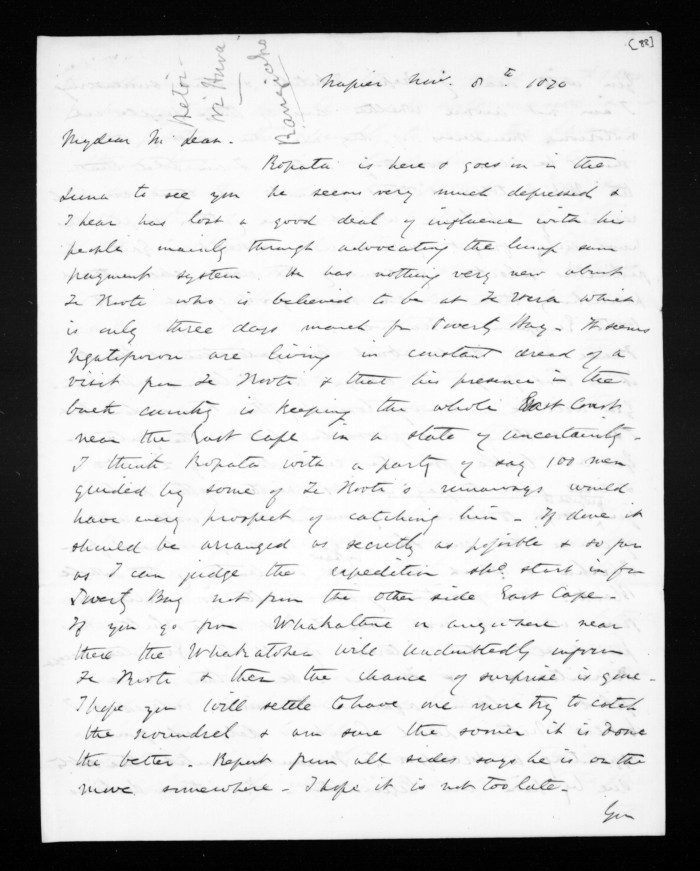 [82]
Retoi
Ni Hura
Rangiaho
Napier Nov. 8th 1870
My dear Mr Lean.
Ropata is here & goes in in the
Luna to see you he seems very much depressed &
I hear has lost a good deal of influence with his
people mainly through advocating the lump sum
payment system. He has nothing very new about
Te Kooti who is believed to be at Te Wera which
is only three days march fm Poverty Bay - It seems
Ngatiporou are living in constant dread of a
visit from Te Kooti & that his presence in the
back country is keeping the whole East Coast
near the East Cape in a state of uncertainty -
I think Ropata with a party of say 100 men
guided by some of Te Kooti's runaways would
have every prospect of catching him - If done it
should be arranged as secretly as possible & so far
as I can judge the expedition shd. start in fm
Poverty Bay not from the other side East Cape -
If you go from Whakatane or anywhere near
there the Whakatohea will undoubtedly inform
Te Kooti & then the chance of surprise is gone -
I hope you will settle to have one more try to catch
the scoundrel & am sure the sooner it is done
the better - Report from all sides says he is on the
move somewhere - I hope it is not too late -
You